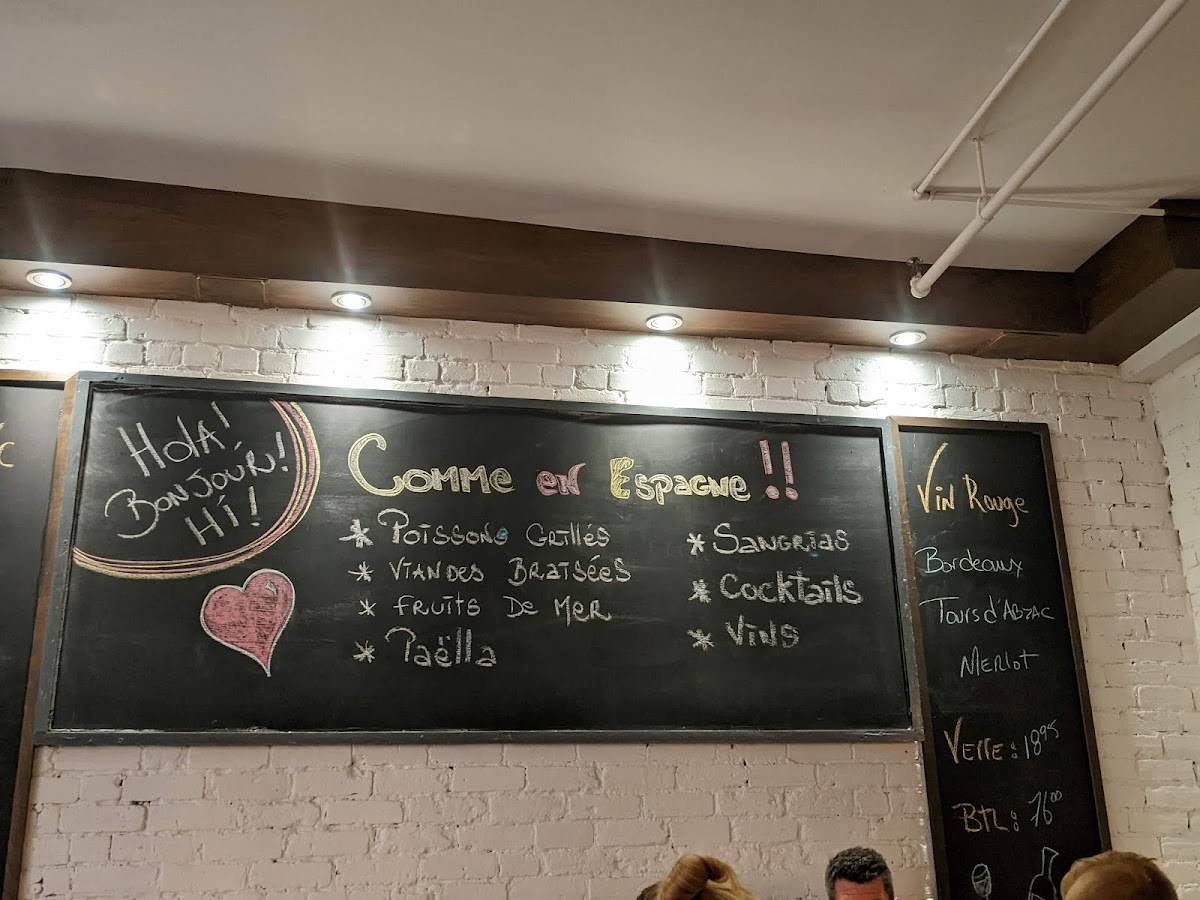 Hola!
Bonjour!
Hi!
Comme en Espagne !!
* Poissons Grillés
* Viandes Braisées
* Fruits De Mer
* Paëlla
* Sangrias
* Cocktails
* Vins
Vin Rouge
Bordeaux
Tours d'Abzac
Merlot
Verre : 18⁹⁵
BTL : 76⁰⁰